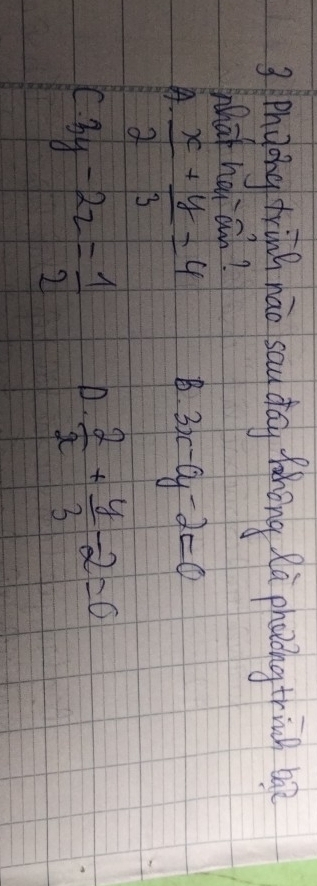 3 Phương trình nào sau đây không là phương trình bậc
nhất hai ẩn?
A. x/2 + y/3 = 4 B. 3x - 0y - 2 = 0
C. 3y - 2z = 1/2 D. 2/x + y/3 - 2 = 0